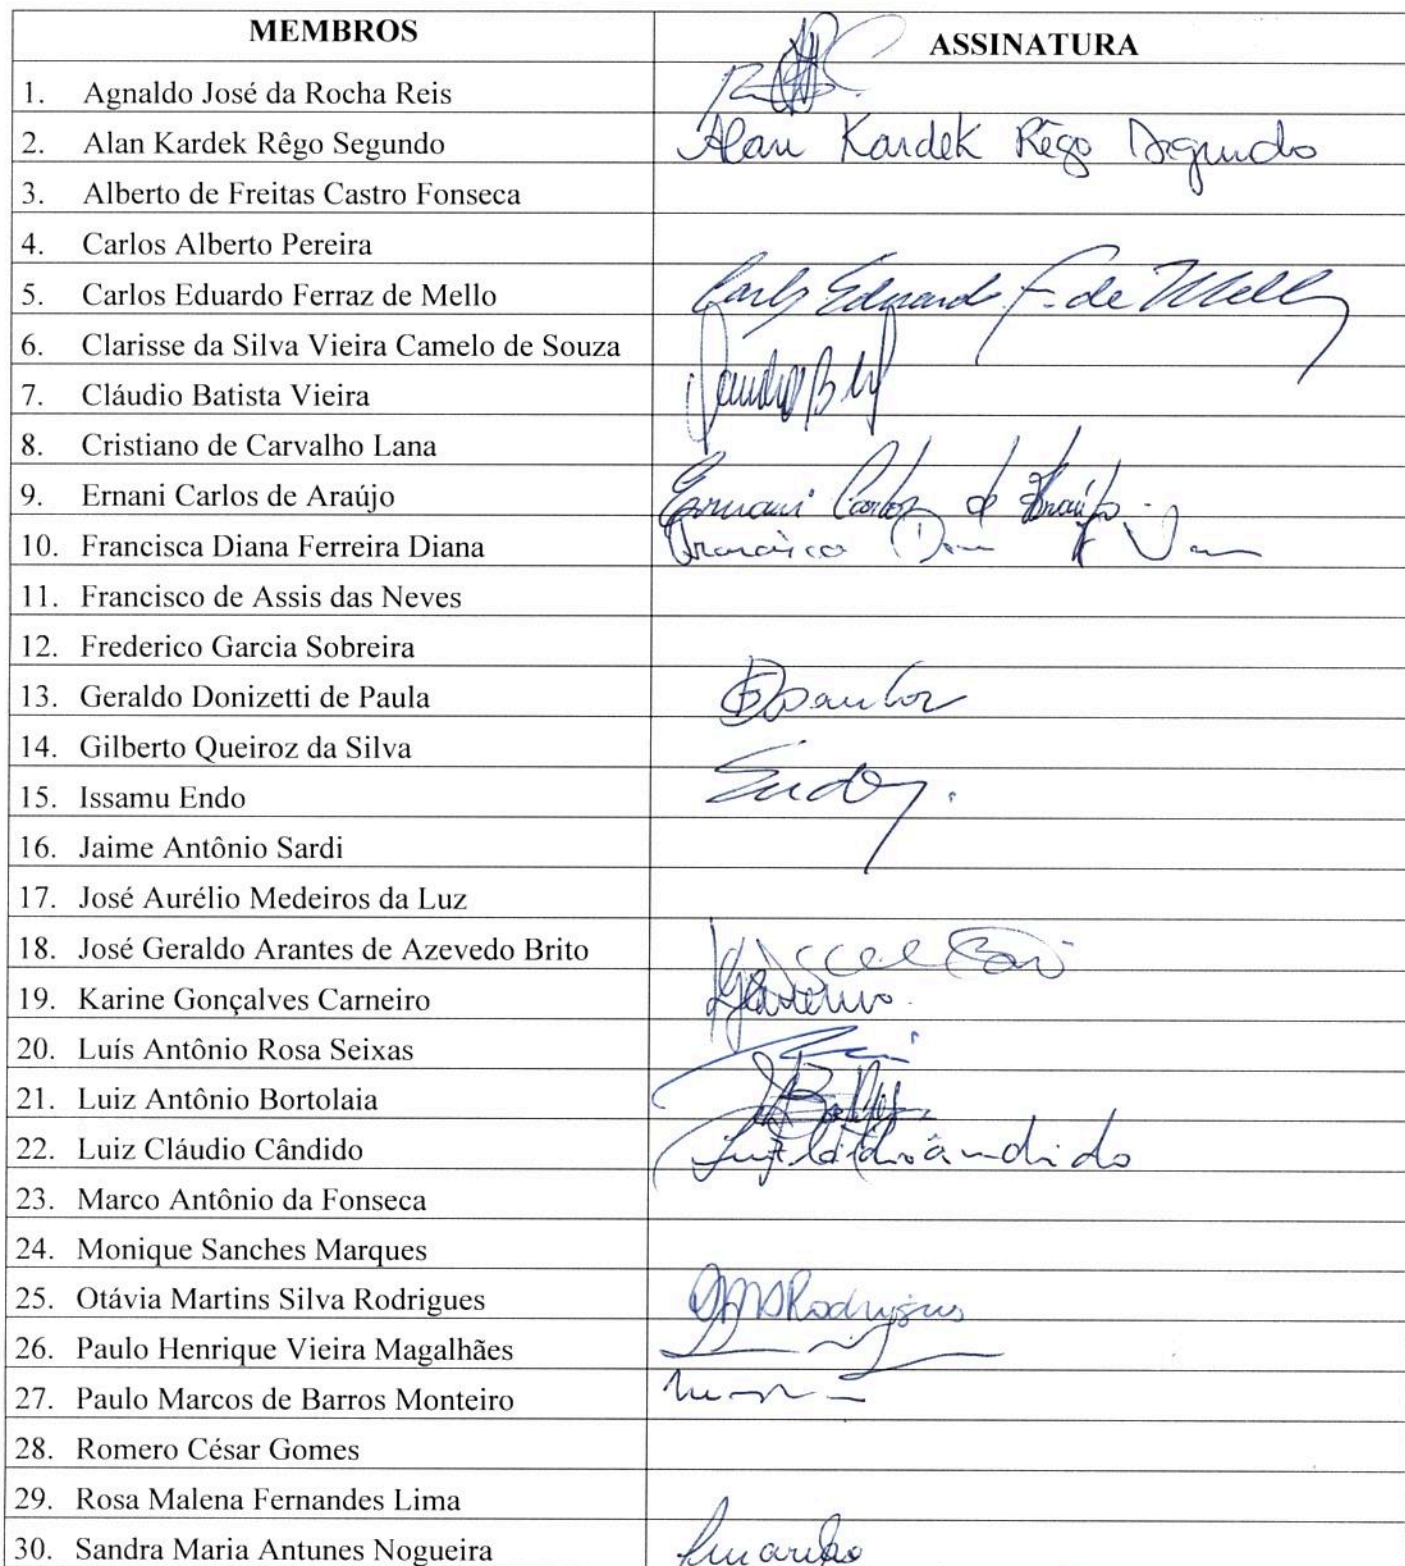 MEMBROS ASSINATURA
1. Agnaldo José da Rocha Reis
2. Alan Kardek Rêgo Segundo Alan Kardek Rêgo Segundo
3. Alberto de Freitas Castro Fonseca
4. Carlos Alberto Pereira
5. Carlos Eduardo Ferraz de Mello Carlos Eduardo F. de Mello
6. Clarisse da Silva Vieira Camelo de Souza
7. Cláudio Batista Vieira
8. Cristiano de Carvalho Lana
9. Ernani Carlos de Araújo Ernani Carlos de Araújo
10. Francisca Diana Ferreira Diana
11. Francisco de Assis das Neves
12. Frederico Garcia Sobreira
13. Geraldo Donizetti de Paula
14. Gilberto Queiroz da Silva
15. Issamu Endo Endo
16. Jaime Antônio Sardi
17. José Aurélio Medeiros da Luz
18. José Geraldo Arantes de Azevedo Brito
19. Karine Gonçalves Carneiro
20. Luís Antônio Rosa Seixas
21. Luiz Antônio Bortolaia
22. Luiz Cláudio Cândido Luiz Cláudio Cândido
23. Marco Antônio da Fonseca
24. Monique Sanches Marques
25. Otávia Martins Silva Rodrigues OMSRodrigues
26. Paulo Henrique Vieira Magalhães
27. Paulo Marcos de Barros Monteiro
28. Romero César Gomes
29. Rosa Malena Fernandes Lima
30. Sandra Maria Antunes Nogueira